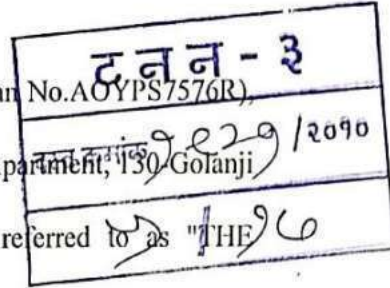 ट न न - ३
an No.AOYPS7576R),
दस्त क्रमांक १८२१ /२०१०
partment, 130-Golanji
referred to as "THE १७